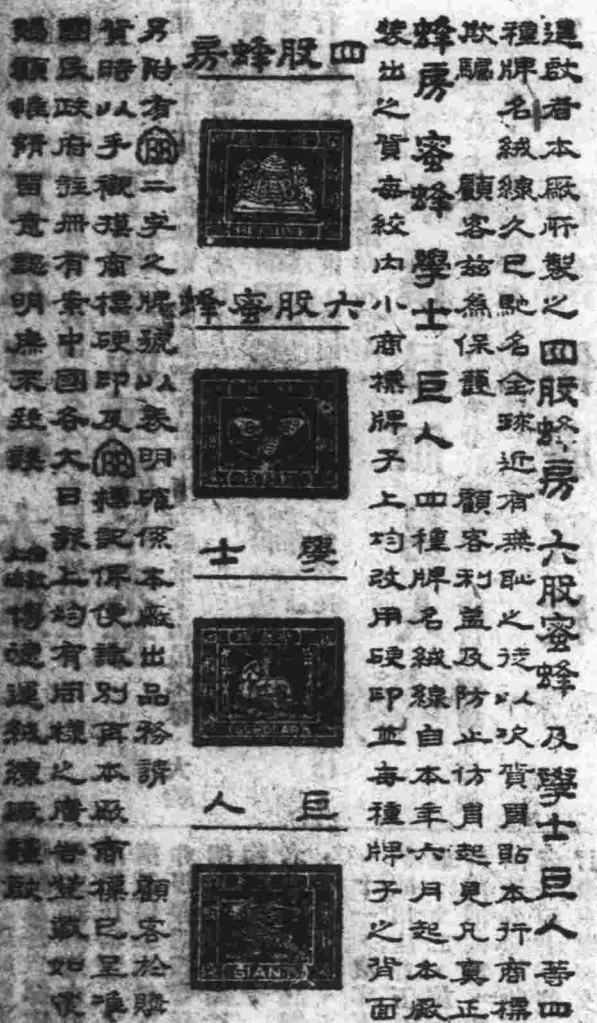 逕啟者本廠所製之四股蜂房 六股蜜蜂 及學士 巨人 等四
種牌名絨線久已馳名全球近有無恥之徒以次貨冒貼本行商標
欺騙 顧客茲為保護 顧客利益及防止仿冒起見凡真正
蜂房 蜜蜂 學士 巨人 四種牌名絨線自本年六月起本廠
裝出之貨每絞内小商標牌子上均改用硬印並每種牌子之背面
四股蜂房
BEEHIVE
六股蜜蜂
學士
SCHOLAR
巨人
GIANT
另附有 二字之牌號以表明確係本廠出品務請 顧客於購
貨時以手襯摸商標硬印及 標記俾便識別再本廠商標已呈准
國民政府註冊有案中國各大日報上均有同樣之廣告登載如蒙
賜顧惟請留意認明庶不致誤 博德運絨線廠謹啟